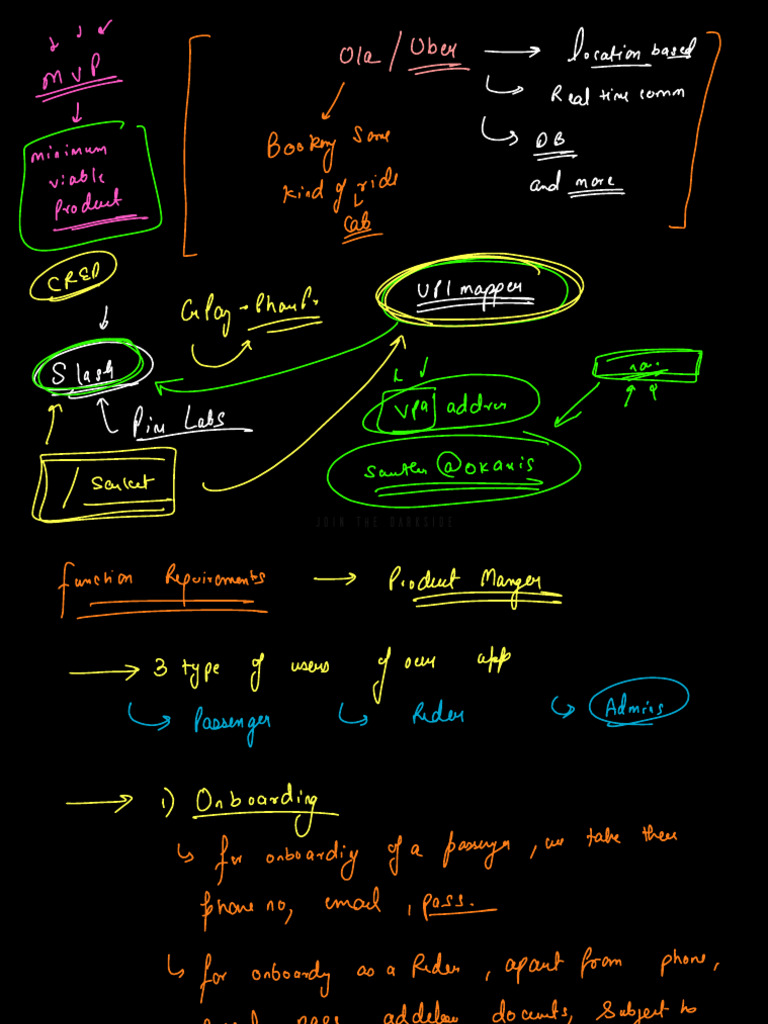 MVP
minimum
viable
Product
Ola / Uber
location based
Real time comm
DB
and more
Booking some
kind of ride
cab
CRED
GPay → PhonePe
UPI mapper
Slash
Pine Labs
/
VPA address
@okaxis
JOIN THE DARKSIDE
function Requirements → Product Manger
→ 3 type of users of our app
Passenger
Rider
Admins
→ 1) Onboarding
for onboardig of a passenger, we take their
phone no, email, pass.
for onboardy as a Rider, apart from phone,
email pass documts, subject to